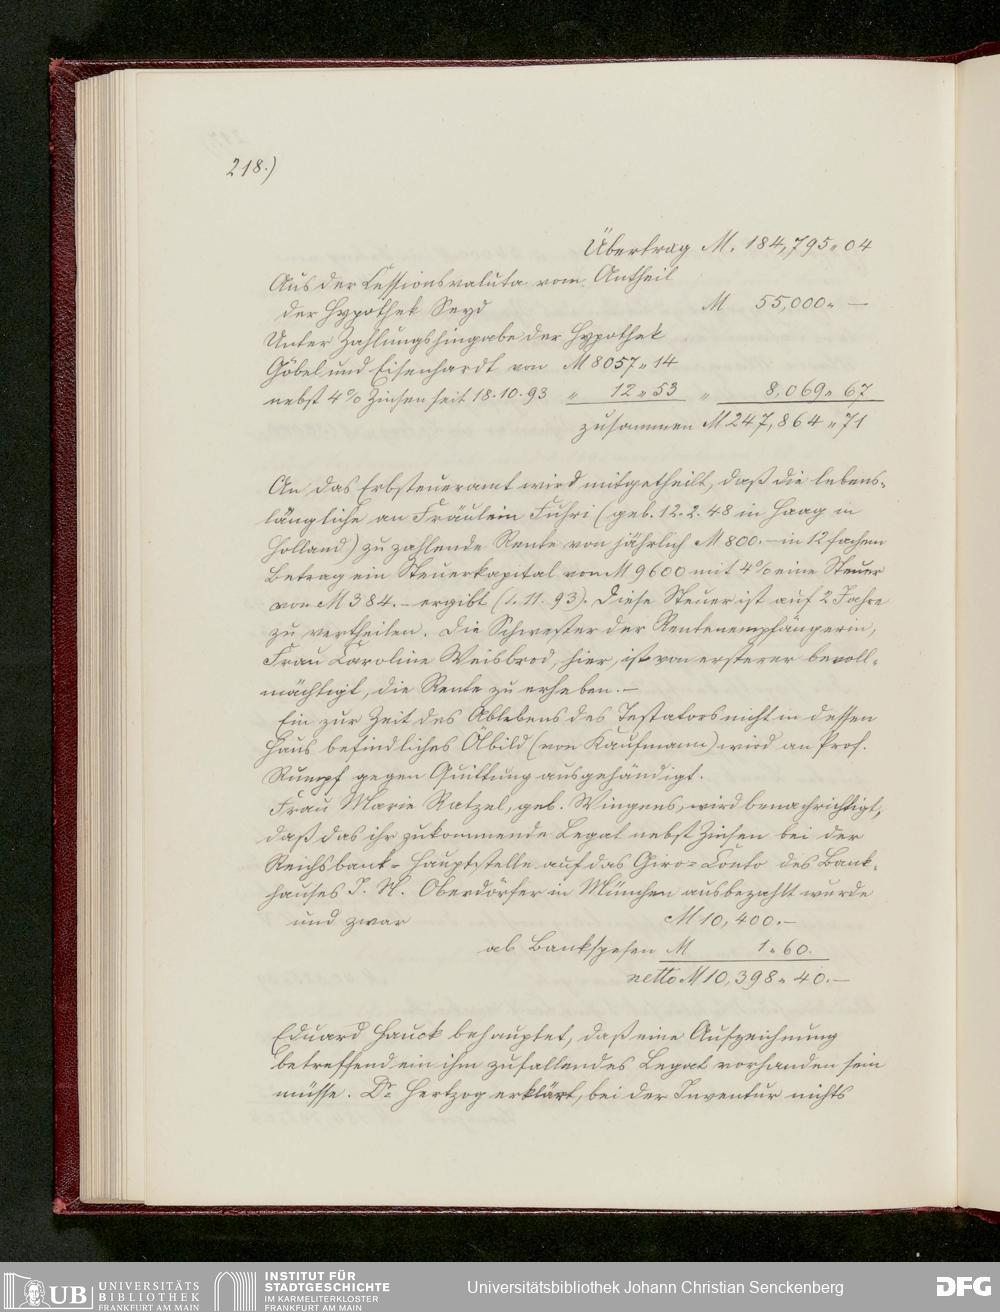 218.)
Übertrag M. 184,795„04
Aus der Cessionsvaluta vom Antheil
der Hypothek Seyd M 55,000„ —
Unter Zahlungshingabe der Hypothek
Göbel und Eisenhardt von M 8057„14
nebst 4% Zinsen seit 18.10.93 „ 12„53 „ 8,069„67
zusammen M 247,864„71
An das Erbsteueramt wird mitgetheilt, daß die lebens-
längliche an Fräulein Fuhri (geb. 12.2.48 in Haag in
Holland) zu zahlende Rente von jährlich M 800.- in 12 fachem
Betrag ein Steuerkapital von M 9600 mit 4% eine Steuer
von M 384.- ergibt (1.11.93). Diese Steuer ist auf 2 Jahre
zu vertheilen. Die Schwester der Rentenempfängerin,
Frau Caroline Weisbrod, hier, ist von ersterer bevoll-
mächtigt, die Rente zu erheben.—
Ein zur Zeit des Ablebens des Testators nicht in dessen
Haus befindliches Ölbild (von Kaufmann) wird an Prof.
Rumpf gegen Quittung ausgehändigt.
Frau Marie Ratzel, geb. Wingens, wird benachrichtigt,
daß das ihr zukommende Legat nebst Zinsen bei der
Reichsbank-Hauptstelle auf das Giro-Conto des Bank-
hauses J. N. Oberdörfer in München ausbezahlt wurde
und zwar M 10,400.-
ab Bankspesen M 1„60.
netto M 10,398„40.—
Eduard Hauck behauptet, daß eine Aufzeichnung
betreffend ein ihm zufallendes Legat vorhanden sein
müsse. Dr. Hertzog erklärt, bei der Inventur nichts
UB UNIVERSITÄTS
BIBLIOTHEK
FRANKFURT AM MAIN
INSTITUT FÜR
STADTGESCHICHTE
IM KARMELITERKLOSTER
FRANKFURT AM MAIN
Universitätsbibliothek Johann Christian Senckenberg
DFG